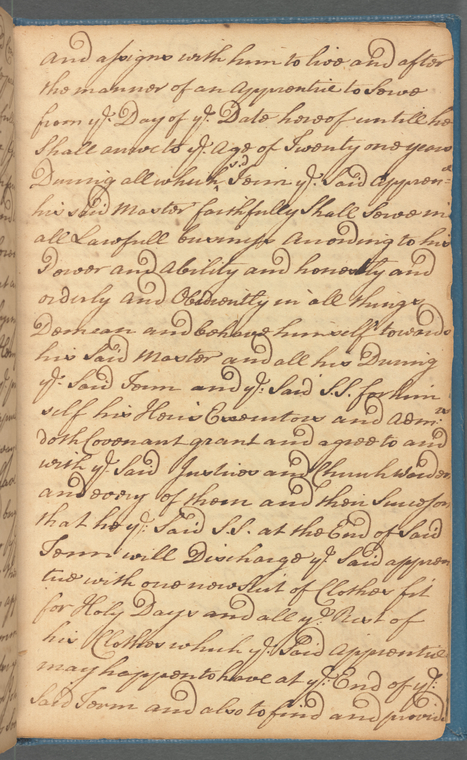 and assigns with him to live and after
the manner of an Apprentice to Serve
from yᵉ. Day of yᵉ. Date hereof untill he
Shall arrive to yᵉ Age of Twenty one years
During all which sᵈ. Term yᵉ. Said Appren
his said Master faithfully Shall Serve in
all Lawfull business According to his
Power and Ability and honestly and
orderly and Obediently in all things
Demean and behave himself towards
his Said Master and all his During
yᵉ. Said Term and yᵉ. Said S.S. for him
self his Heirs Executors and Admʳˢ
doth Covenant grant and agree to and
with yᵉ. Said Justices and Church Warden
and every of them and their Successors
that he yᵉ. Said S.S. at the End of Said
Term will Discharge yᵉ Said appren
tice with one new Suit of Clothes fit
for Holy Days and all yᵉ. Rest of
his Clothes which yᵉ. Said Apprentice
may happen to have at yᵉ. End of yᵉ.
Said Term and also to find and provide